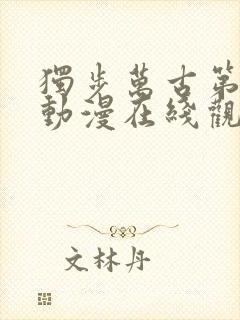 獨步萬古第
動漫在綫觀
文林丹